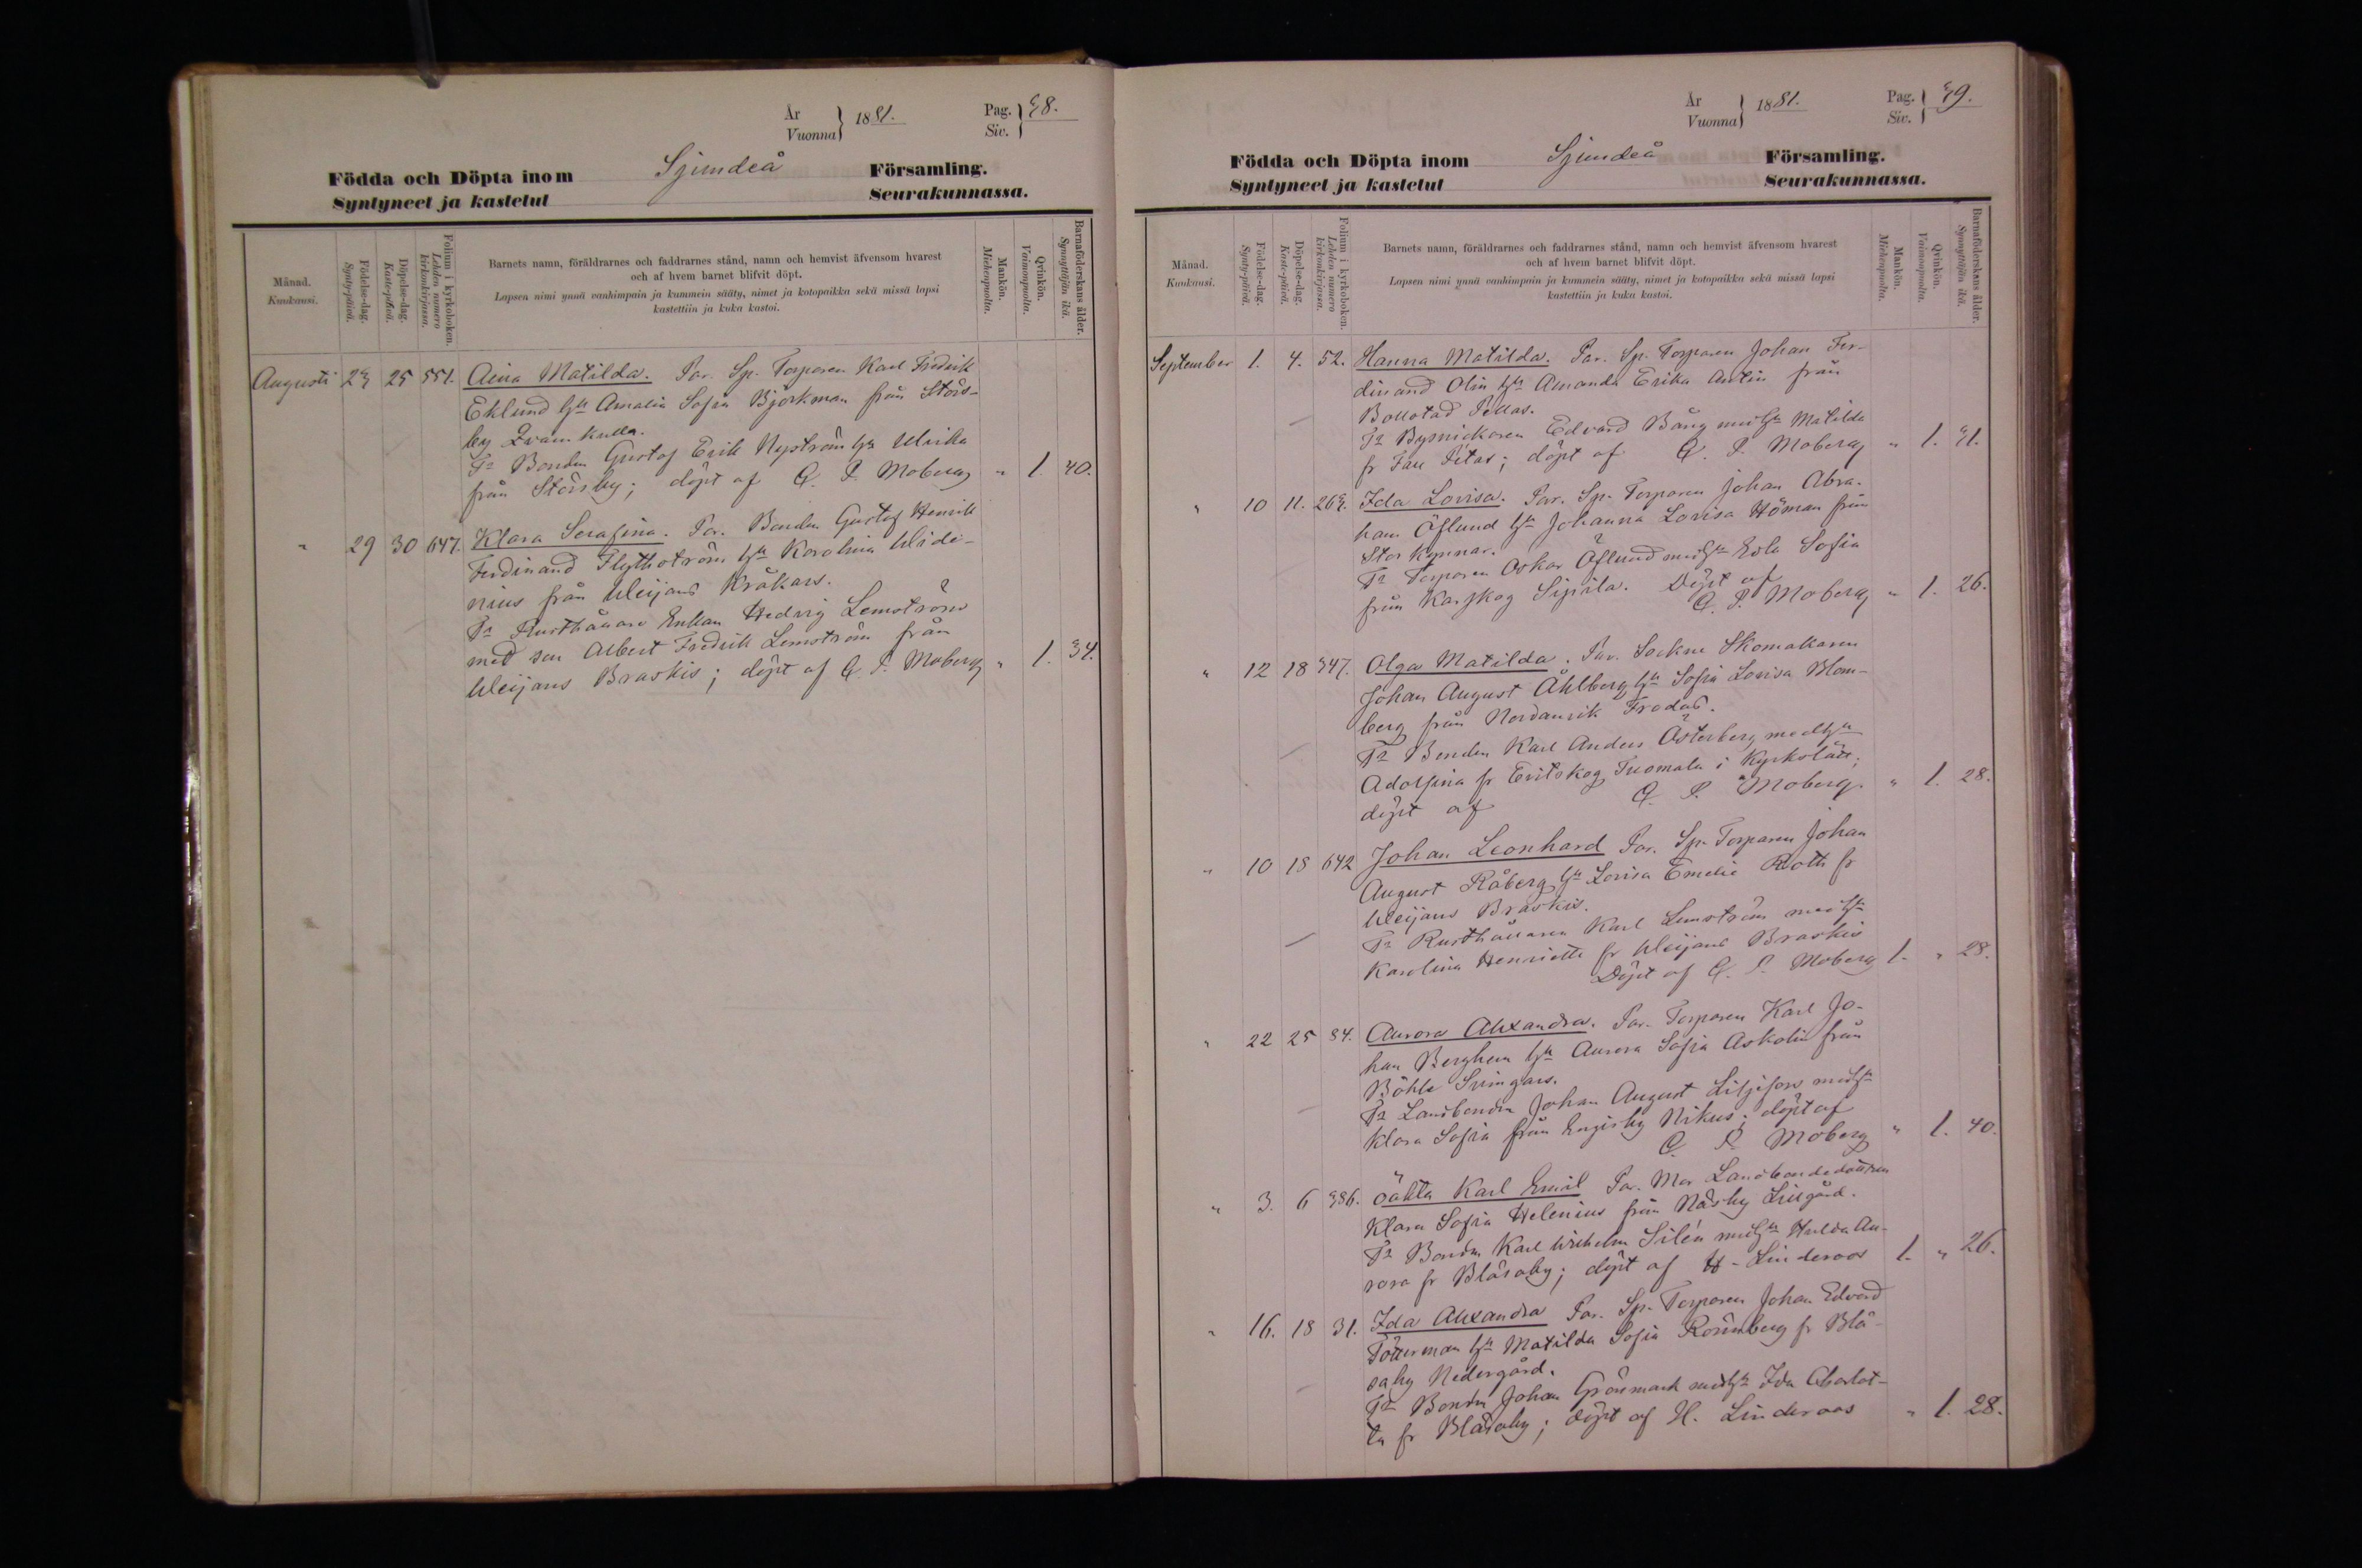 År
Vuonna } 1881.
Pag.
Siv. } 38.
Födda och Döpta inom Sjundeå Församling.
Syntyneet ja kastetut Seurakunnassa.
Månad.
Kuukausi.
Födelse-dag.
Synty-päivä.
Döpelse-dag.
Kaste-päivä.
Folium i kyrkoboken.
Lehden numero
kirkonkirjassa.
Barnets namn, föräldrarnes och faddrarnes stånd, namn och hemvist äfvensom hvarest
och af hvem barnet blifvit döpt.
Lapsen nimi ynnä vanhimpain ja kummein sääty, nimet ja kotopaikka sekä missä lapsi
kastettiin ja kuka kastoi.
Mankön.
Miehenpuolta.
Qvinkön.
Vaimonpuolta.
Barnaföderskans ålder.
Synnyttäjän ikä.
Augusti 23 25 551. Aina Matilda. Par. Sp. Torparen Karl Fredrik
Eklund Hu Amalia Sofia Björkman från Störs-
by Qvarnkulla.
Fr Bonden Gustaf Erik Nyström Hu Ulrika
från Störsby; döpt af Q. P. Moberg " 1 40.
" 29 30 647. Klara Serafina. Par. Bonden Gustaf Henrik
Ferdinand Flythström Hu Karolina Wide-
nius från Weijans Kråkars.
Fr Rusthållare Enkan Hedvig Lemström
med son Albert Fredrik Lemström från
Weijans Braskis; döpt af Q P. Moberg " 1. 34.
År
Vuonna } 1881.
Pag.
Siv. } 39.
Födda och Döpta inom Sjundeå Församling.
Syntyneet ja kastetut Seurakunnassa.
Månad.
Kuukausi.
Födelse-dag.
Synty-päivä.
Döpelse-dag.
Kaste-päivä.
Folium i kyrkoboken.
Lehden numero
kirkonkirjassa.
Barnets namn, föräldrarnes och faddrarnes stånd, namn och hemvist äfvensom hvarest
och af hvem barnet blifvit döpt.
Lapsen nimi ynnä vanhimpain ja kummein sääty, nimet ja kotopaikka sekä missä lapsi
kastettiin ja kuka kastoi.
Mankön.
Miehenpuolta.
Qvinkön.
Vaimonpuolta.
Barnaföderskans ålder.
Synnyttäjän ikä.
September 1. 4. 52. Hanna Matilda. Par. Sp. Torparen Johan Fer-
dinand Olin Hu Amanda Erika Antin från
Bollstad Pellas.
Fr Bysnickaren Edvard Bång med Hu Matilda
fr Pitar; döpt af Q. P. Moberg " 1. 31.
" 10 11. 263. Ida Lovisa. Par. Sp. Torparen Johan Abra-
ham Öflund Hu Johanna Lovisa Höman från
Stor Kynnar.
Fr Torparen Oskar Öflund med Hu Eva Sofia
från Karskog Sipila. Döpt af
Q. P. Moberg " 1. 26.
" 12 18 347. Olga Matilda. Par. Sockne Skomakaren
Johan August Åhlberg Hu Sofia Lovisa Blom-
berg från Nordanvik Frodas.
Fr Bonden Karl Anders Österberg med Hu
Adolfina fr Evitskog Tuomala i Kyrkslätt;
döpt af Q. P. Moberg. " 1. 28.
" 10 18 642 Johan Leonhard Par. Sp. Torparen Johan
August Råberg Hu Lovisa Emelie Roth fr
Weijans Braskis.
Fr Rusthållaren Karl Lemström med Hu
Karolina Henriette fr Weijans Braskis
Döpt af Q. P. Moberg 1. " 28.
" 22 25 84. Aurora Alexandra. Par. Torparen Karl Jo-
han Berghem Hu Aurora Sofia Askolin från
Böhle Svingars.
Fr Landbonden Johan August Liljefors med Hu
Klara Sofia från Engisby Nikus; döpt af
Q. P. Moberg " 1. 40.
" 3. 6 386. oäkta Karl Emil Par. Mor Landbondedottren
Klara Sofia Helenius från Näsby Lillgård.
Fr Bonden Karl Wilhelm Silén med Hu Hulda Au-
rora fr Blåsaby; döpt af H. Linderoos 1. " 26.
" 16. 18 31. Ida Alexandra Par. Sp. Torparen Johan Edvard
Fötterman Hu Matilda Sofia Rönnberg fr Blå-
saby Nedergård.
Fr Bonden Johan Grönmark med Hu Ida Charlot-
ta fr Blåsaby; döpt af H. Linderoos " 1. 28.